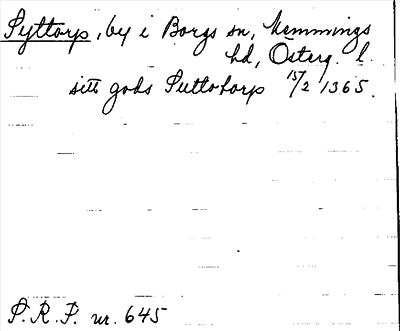 Pyttorp, by i Borgs sn, Memmings
hd, Österg. l.
sitt gods Puttotorp 15/2 1365.
P.R.P. nr. 645